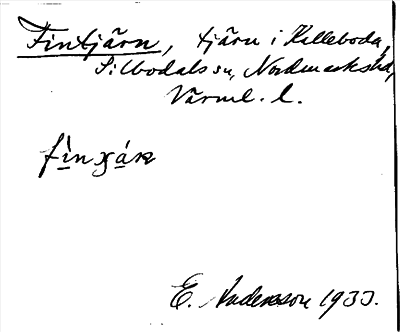 Fintjärn, tjärn i Kalleboda,
Silbodals sn, Nordmarks hd,
Värml. l.
fìnχá̀n
E. Andersson 1933.